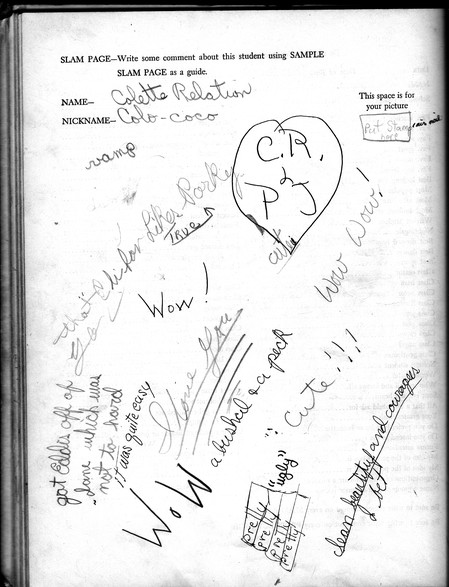 SLAM PAGE—Write some comment about this student using SAMPLE
SLAM PAGE as a guide.
NAME— Colette Relation
NICKNAME— Colo-coco
This space is for
your picture
Post Stamp
here
air mail
vamp
C.R.
&
P J
cute
That's
Chicken Likes Porky
TRUE
Wow Wow!
Wow!
I love You
a bushel & a peck
Cute!!!
got Eddis off of
Jane which was
not to hard
it was quite easy
Wow
"ugly"
pretty
pretty
pretty
pretty
clean beautiful and courages
I bet